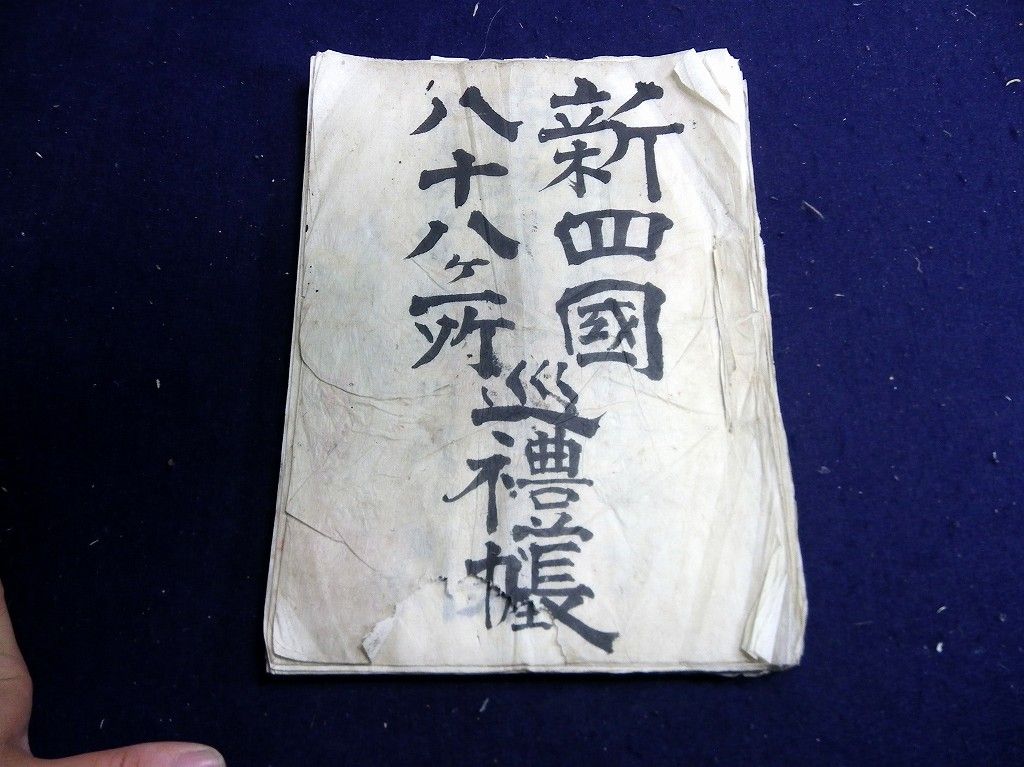 新四國
八十八ヶ所
巡禮帳